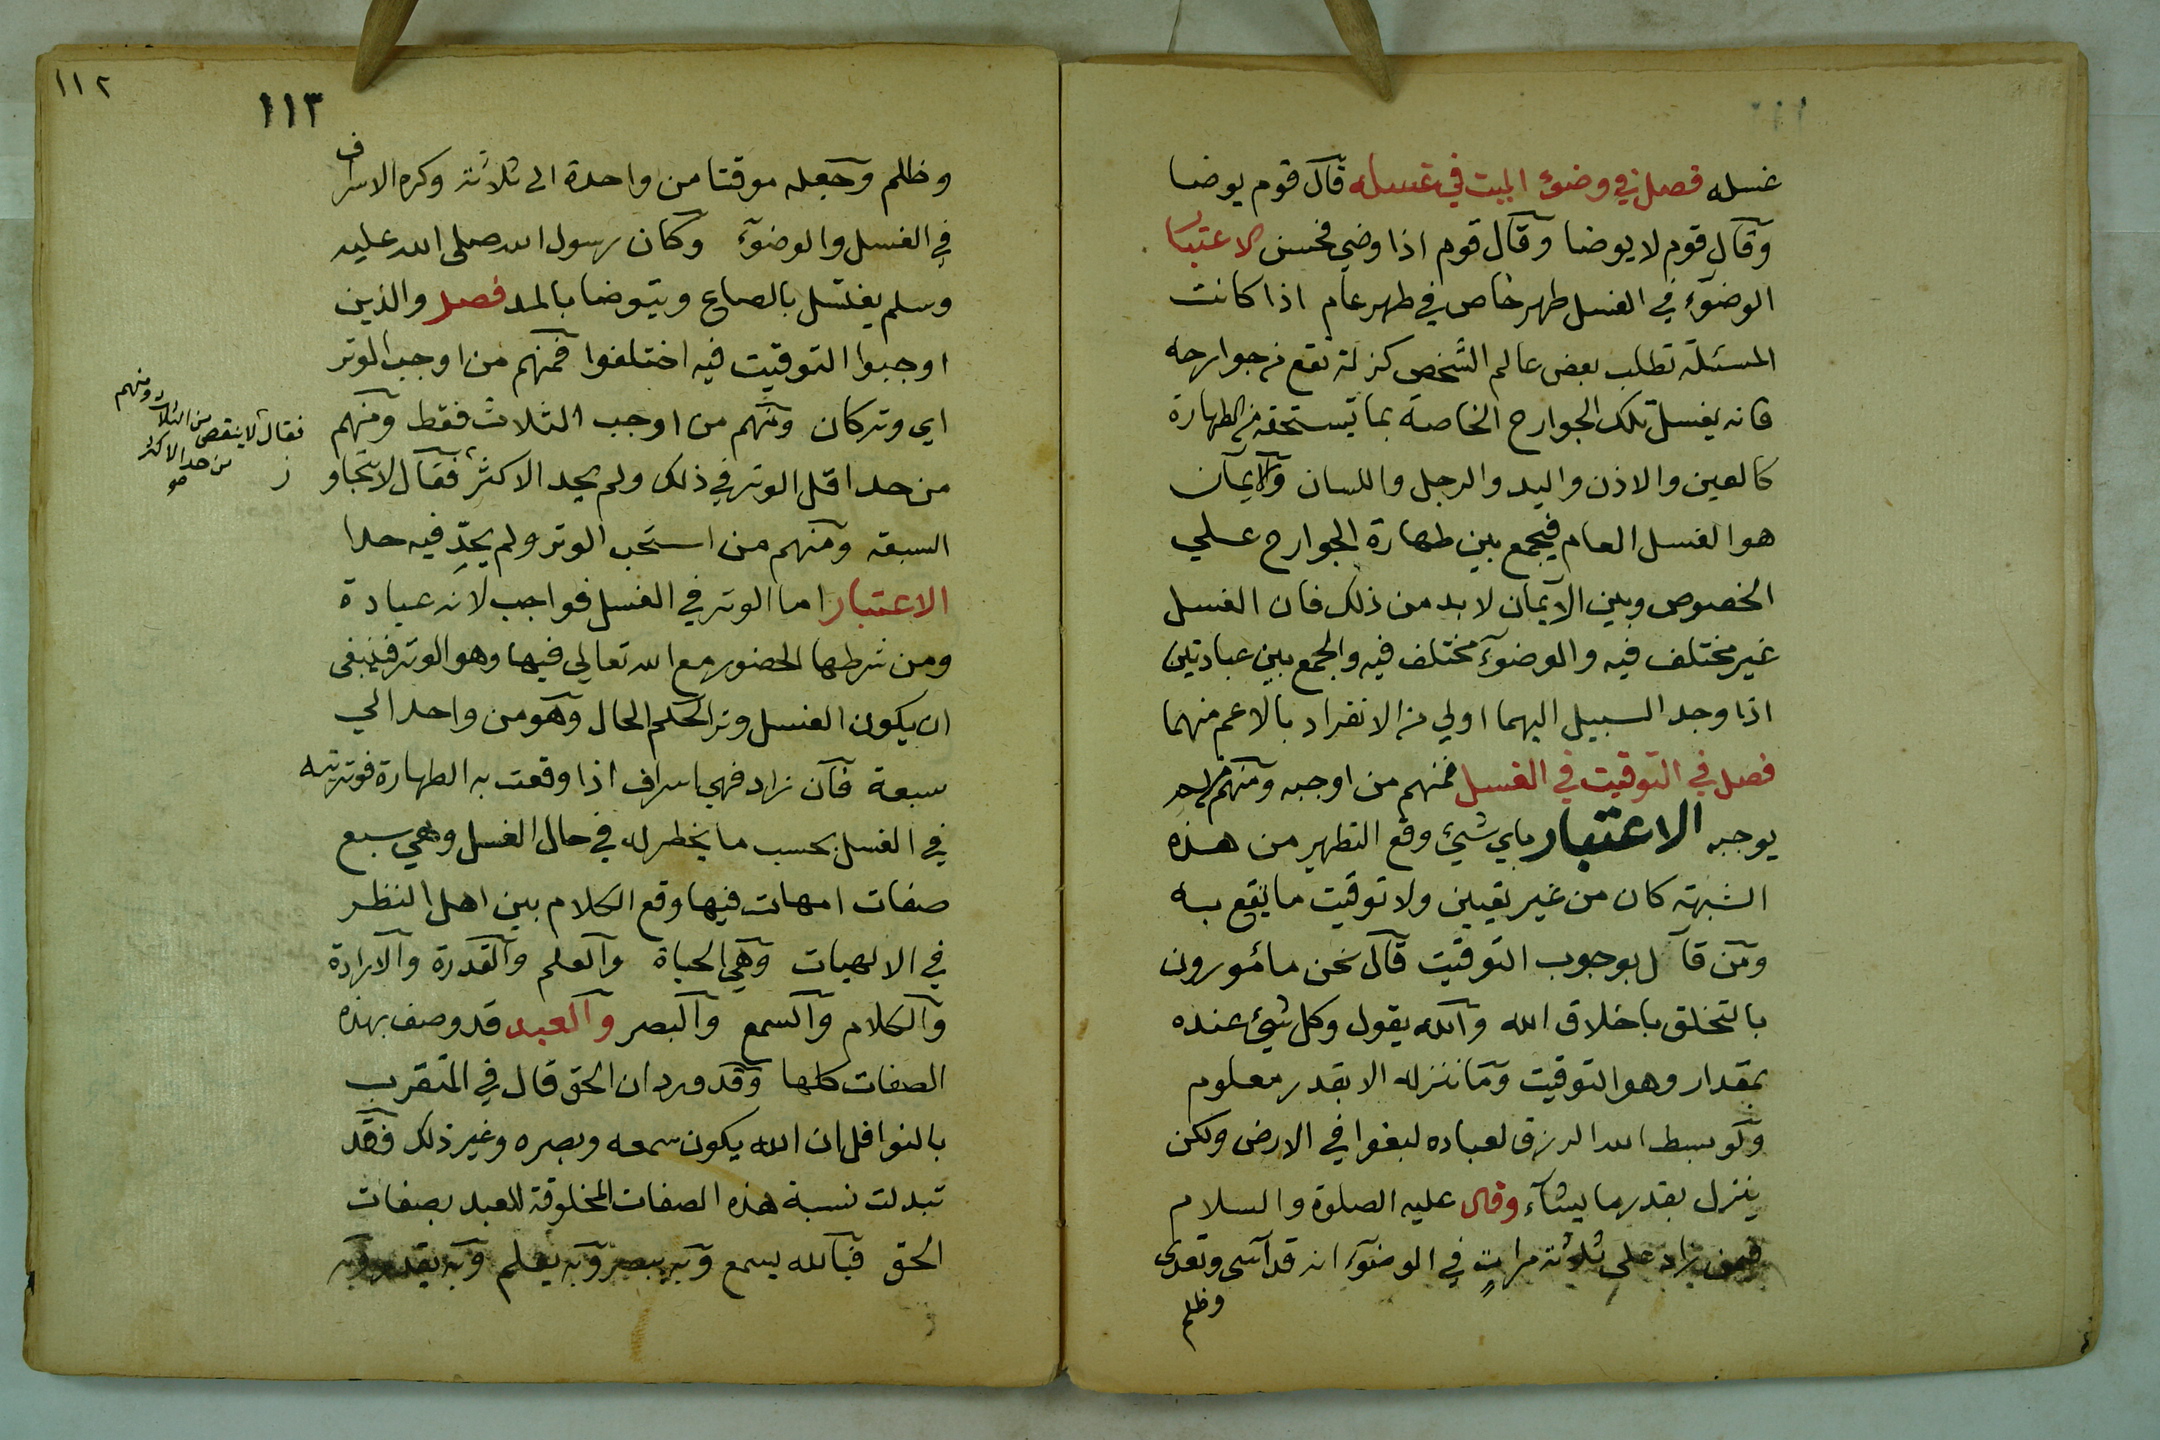 غسله فصل في وضوء الميت في غسله قال قوم يوضا
وقال قوم لا يوضا وقال قوم اذا وضي فحسن الاعتبار
الوضوء في الغسل طهر خاص في طهر عام اذا كانت
المسئلة تطلب بعض عالم الشخص كزلة تقع من جوارحه
فانه يغسل تلك الجوارح الخاصة بما تستحقه من الطهارة
كالعين والاذن واليد والرجل واللسان والايمان
هو الغسل العام فيجمع بين طهارة الجوارح علي
الخصوص وبين الايمان لا بد من ذلك فان الغسل
غير مختلف فيه والوضوء مختلف فيه والجمع بين عبادتين
اذا وجد السبيل اليهما اولي من الانفراد بالاعم منهما
فصل في التوقيت في الغسل فمنهم من اوجبه ومنهم من لم
يوجبه الاعتبار باي شيئ وقع التطهير من هذه
الشبهة كان من غير تعيين ولا توقيت ما يقع به
ومن قال بوجوب التوقيت قال نحن مامورون
بالتخلق باخلاق الله والله يقول وكل شيئ عنده
بمقدار وهو التوقيت وما ننزله الا بقدر معلوم
ولو بسط الله الرزق لعباده لبغوا في الارض ولكن
ينزل بقدر ما يشآء وقال عليه الصلوة والسلام
فمن زاد على ثلاثة مرات في الوضوء انه قد آسى وتعدى
وظلم
١١٢
١١٣
وظلم وجعله موقتا من واحدة الى ثلاثة وكره الاسراف
في الغسل والوضوء وكان رسول الله صلى الله عليه
وسلم يغتسل بالصاع ويتوضا بالمد فصل والذين
اوجبوا التوقيت فيه اختلفوا فمنهم من اوجب الوتر
اي وتر كان ومنهم من اوجب الثلاث فقط ومنهم
من حد اقل الوتر في ذلك ولم يحد الاكثر فقال لا يتجاوز
السبعة ومنهم من استحب الوتر ولم يحد فيه حدا
الاعتبار اما الوتر في الغسل فواجب لانه عبادة
ومن شرطها الحضور مع الله تعالي فيها وهو الوتر فينبغى
ان يكون الغسل وترا لحكم الحال وهو من واحد الي
سبعة فان زاد فهي اسراف اذا وقعت به الطهارة فوتريته
في الغسل بحسب ما يخطر له في حال الغسل وهي سبع
صفات امهات فيها وقع الكلام بين اهل النظر
في الالهيات وهي الحياة والعلم والقدرة والارادة
والكلام والسمع والبصر والعبد قد وصف بهذه
الصفات كلها وقد ورد ان الحق قال في المتقرب
بالنوافل ان الله يكون سمعه وبصره وغير ذلك فقد
تبدلت نسبة هذه الصفات المخلوقة للعبد بصفات
الحق فبالله يسمع وبه يبصر وبه يعلم وبه يقدر وبه
فقال لا ينقص من الثلاث ومنهم
من حد الاكثر